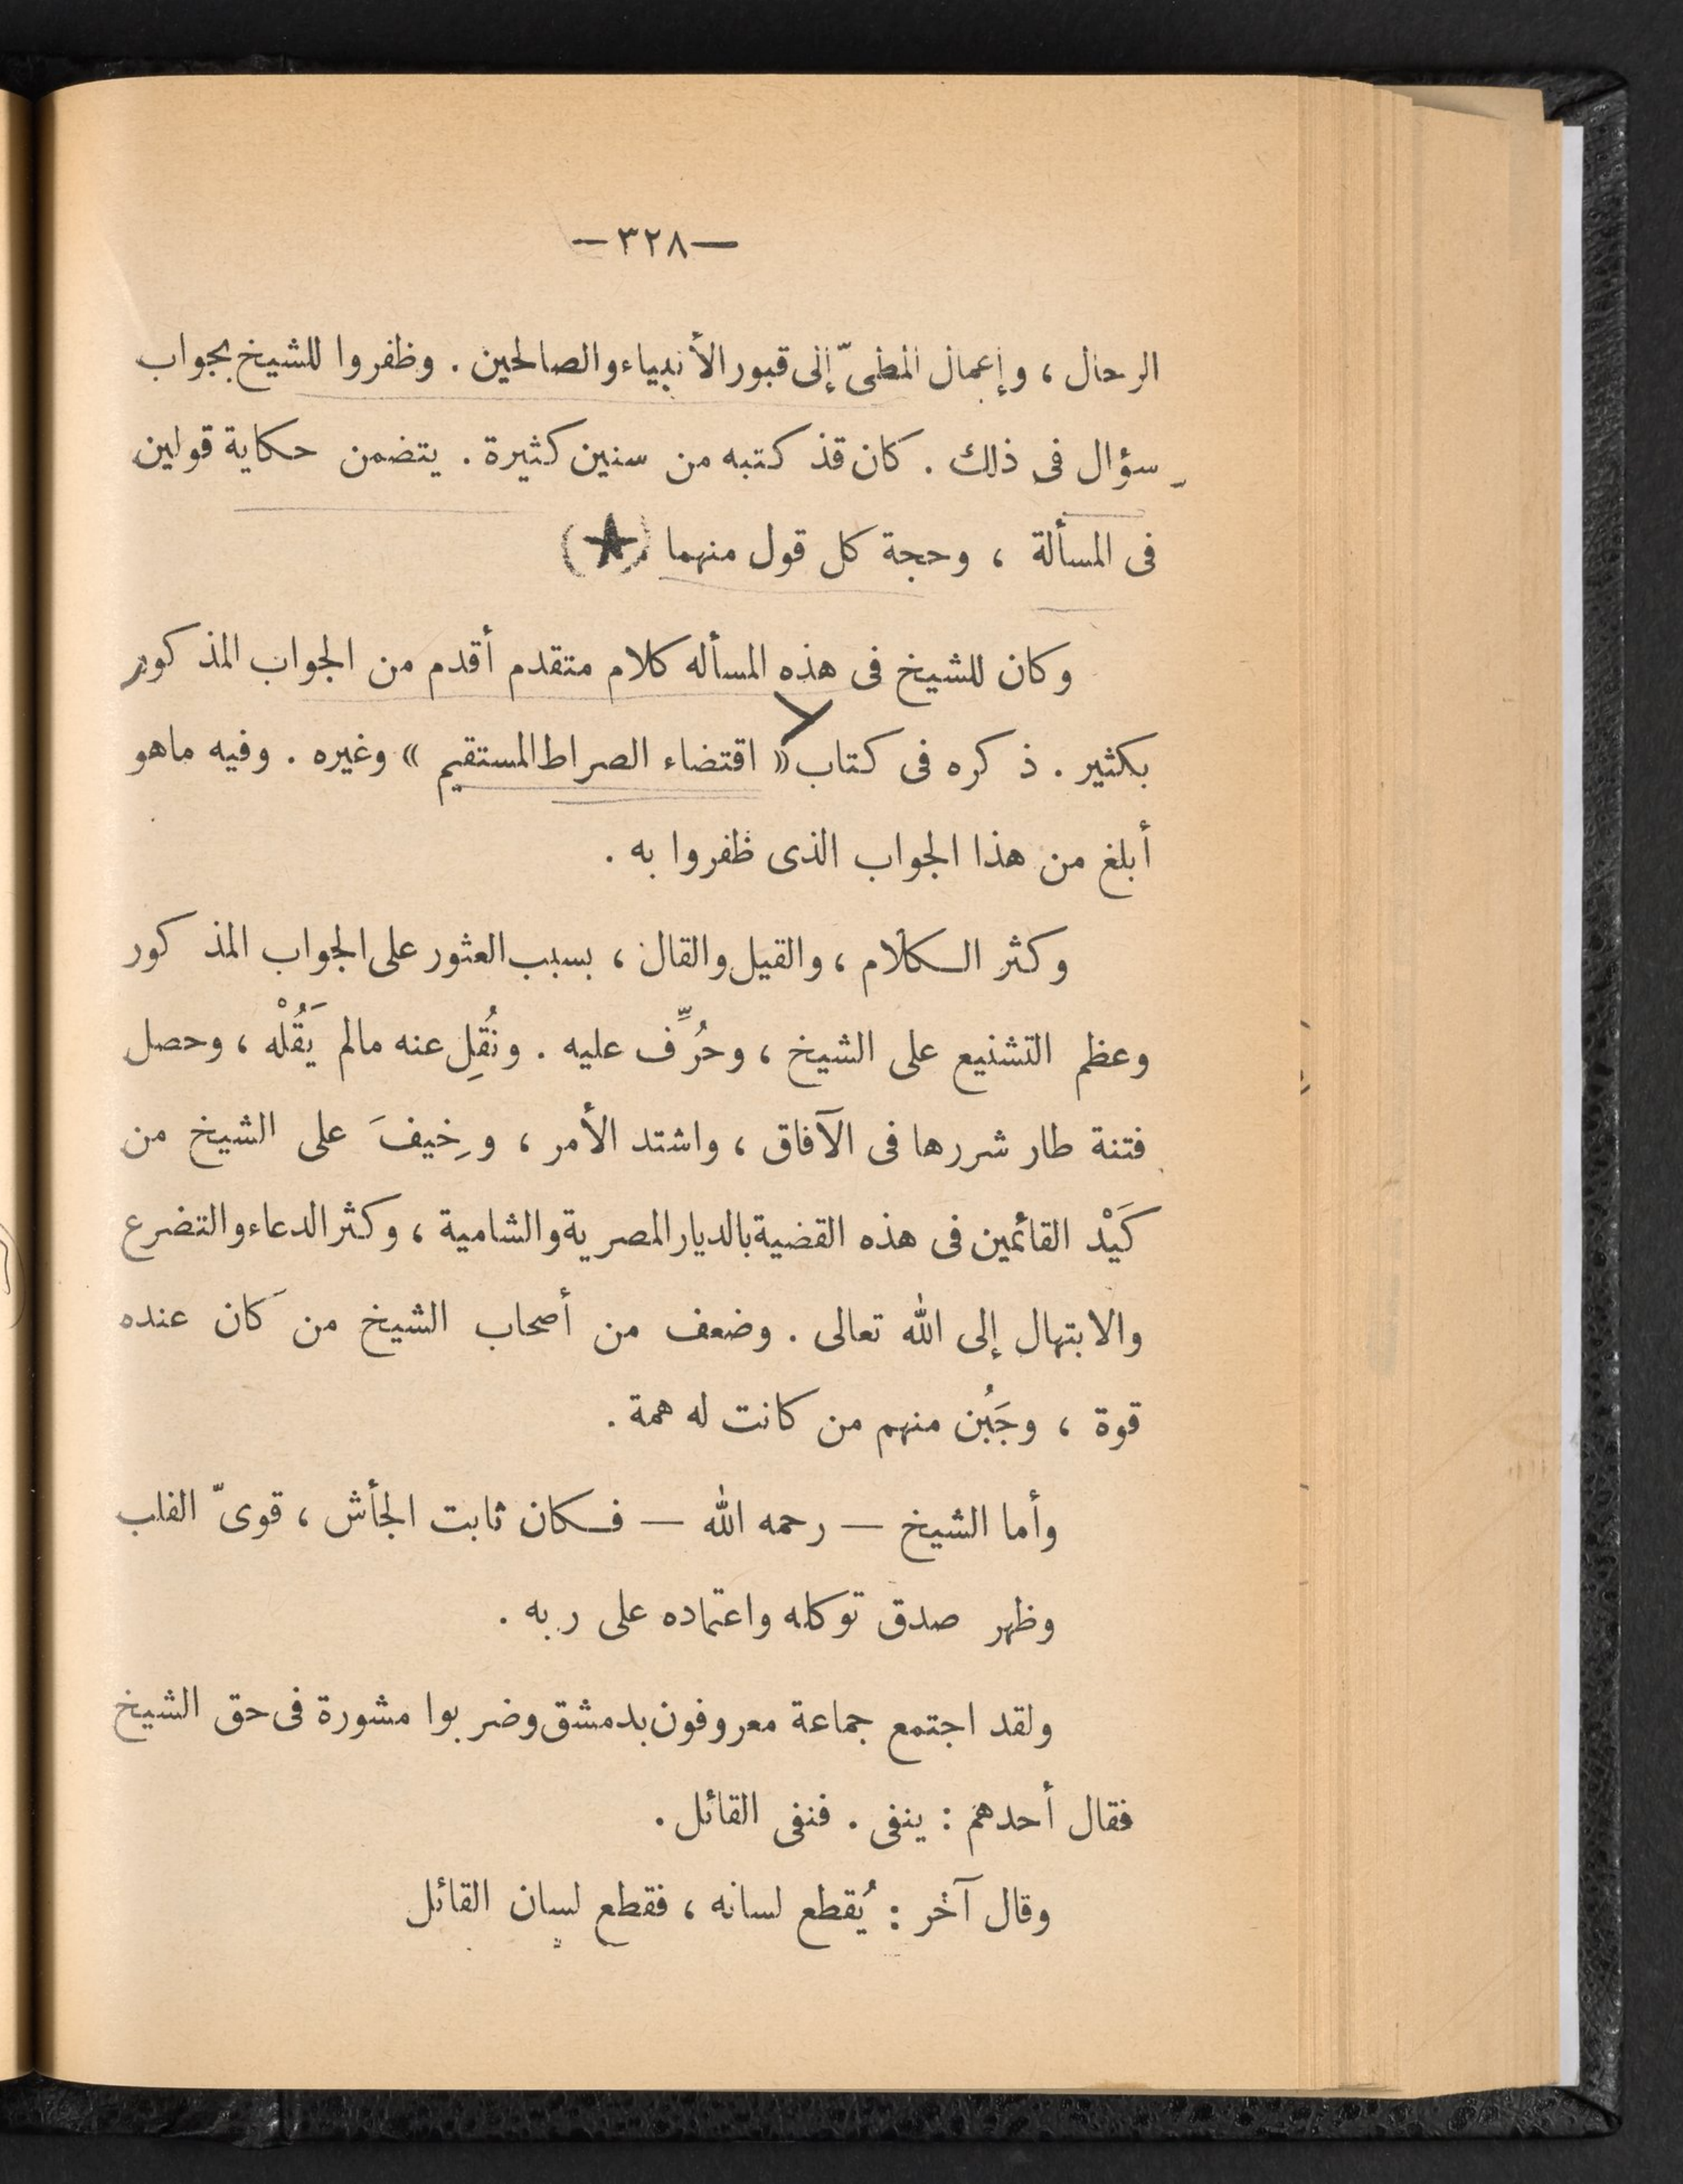 —٣٢٨—
الرحال ، وإعمال المطىّ إلى قبور الأنبياء والصالحين . وظفروا للشيخ بجواب
سؤال فى ذلك . كان قد كتبه من سنين كثيرة . يتضمن حكاية قولين
فى المسألة ، وحجة كل قول منهما (★)
وكان للشيخ فى هذه المسأله كلام متقدم أقدم من الجواب المذكور
بكثير . ذكره فى كتاب « اقتضاء الصراط المستقيم » وغيره . وفيه ماهو
أبلغ من هذا الجواب الذى ظفروا به .
وكثر الكلام ، والقيل والقال ، بسبب العثور على الجواب المذكور
وعظم التشنيع على الشيخ ، وحُرِّف عليه . ونُقِل عنه مالم يَقُلْه ، وحصل
فتنة طار شررها فى الآفاق ، واشتد الأمر ، وخِيفَ على الشيخ من
كَيْد القائمين فى هذه القضية بالديار المصرية والشامية ، وكثر الدعاء والتضرع
والابتهال إلى الله تعالى . وضعف من أصحاب الشيخ من كان عنده
قوة ، وجَبُن منهم من كانت له همة .
وأما الشيخ — رحمه الله — فكان ثابت الجأش ، قوىّ القلب
وظهر صدق توكله واعتماده على ربه .
ولقد اجتمع جماعة معروفون بدمشق وضربوا مشورة فى حق الشيخ
فقال أحدهم : ينفى . فنفى القائل .
وقال آخر : يُقطع لسانه ، فقطع لسان القائل